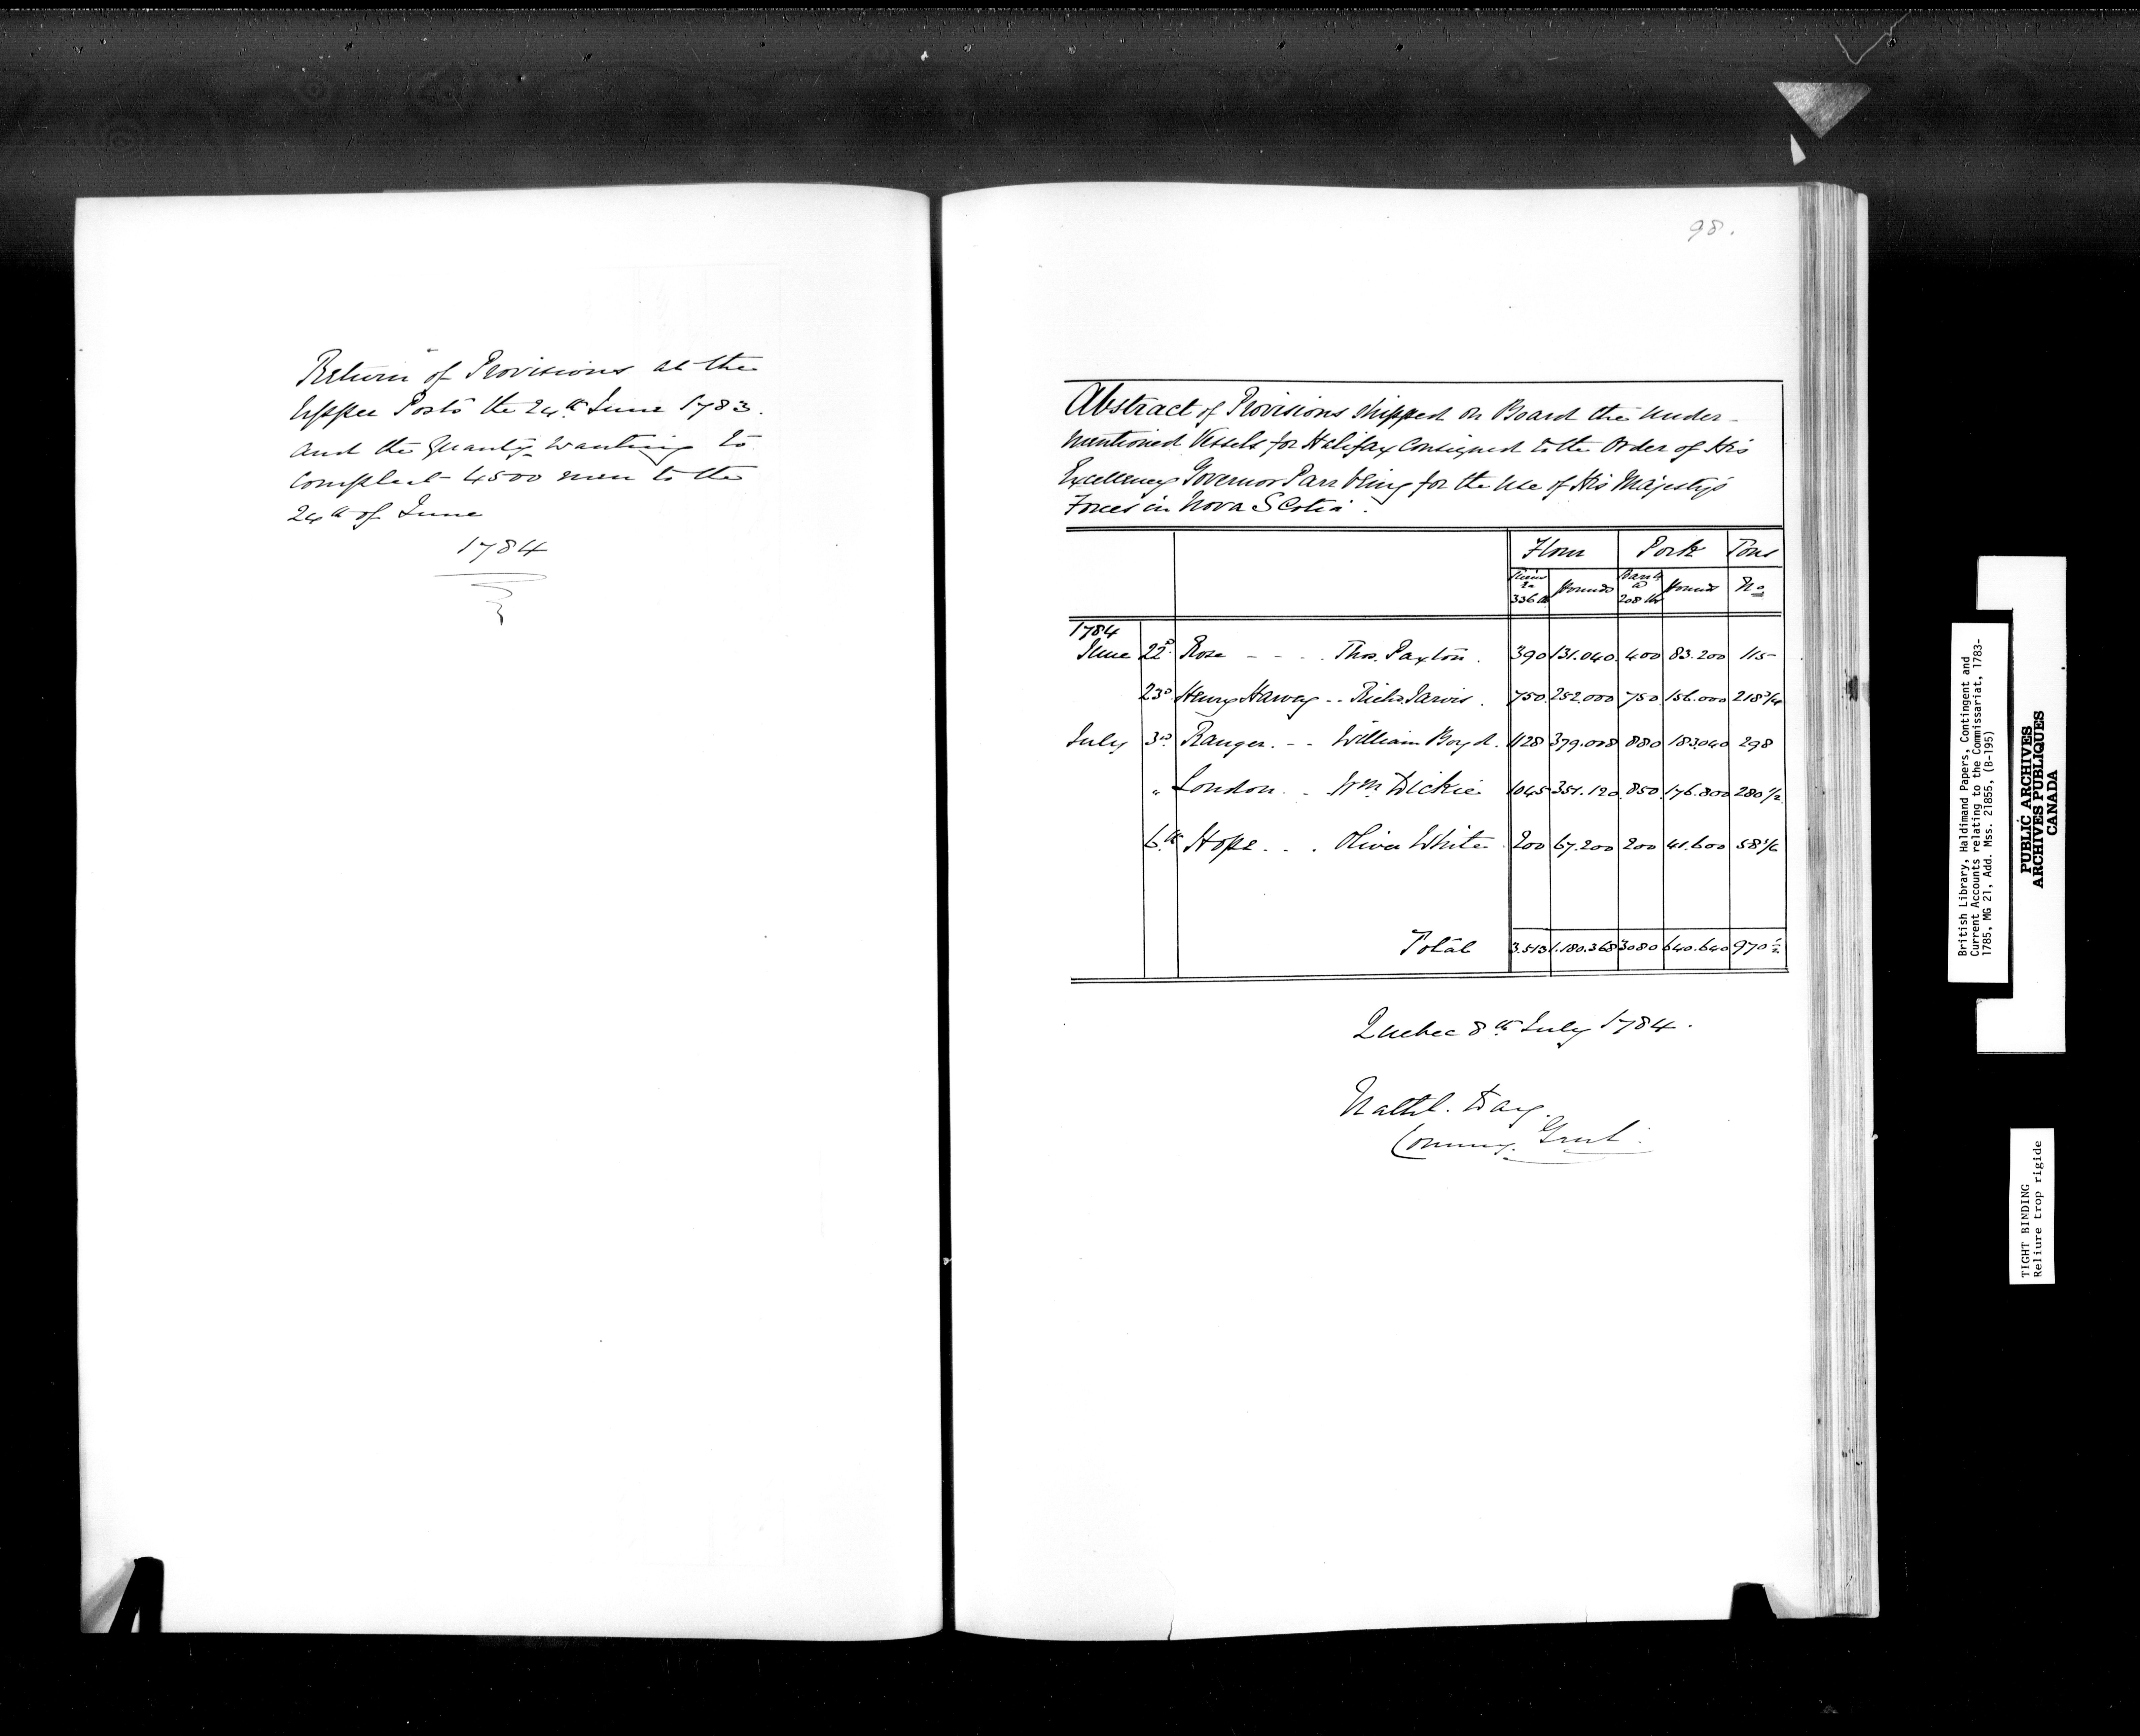 Return of Provisions at the
Upper Posts the 24th June 1783.
and the Quanty wanting to
Compleat 4500 men to the
24th of June
1784
98.
Abstract of Provisions Shipped on Board the under-
mentioned Vessels for Halifax Consigned to the Order of His
Excellency Governor Parr being for the Use of His Majesty's
Forces in Nova Scotia.
Flour Pork Tons
336 lb Pounds Barrls a 208 lbs Pounds No
1784
June 22d Rose - - - . Thos. Paxton. 390 131.040. 400 83.200 115
23d Henry Harvey -- Richd. Jarvis. 750. 252.000 750 156.000 218 3/4
July 3d Ranger. -- William Boyd. 1128 379.008 880 183.040 298
" London. - Wm Dickie 1045 351.120 850 176.800 280 1/2
6th Hope. . . Oliver White 200 67.200 200 41.600 58 1/6
Total 3.513 1.180.368 3080 640.640 970 1/2
Quebec 8th July 1784.
Nathl. Day.
Commy. Genl.
British Library, Haldimand Papers, Contingent and
Current Accounts relating to the Commissariat, 1783-
1785, MG 21, Add. Mss. 21855, (B-195)
PUBLIC ARCHIVES
ARCHIVES PUBLIQUES
CANADA
TIGHT BINDING
Reliure trop rigide